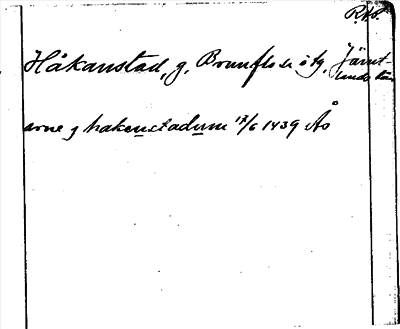 RAp.
Håkanstad, g. Brunflo s. o tg. Jämt-
lands län
arne j hakenstadum 17/6 1439 Ås